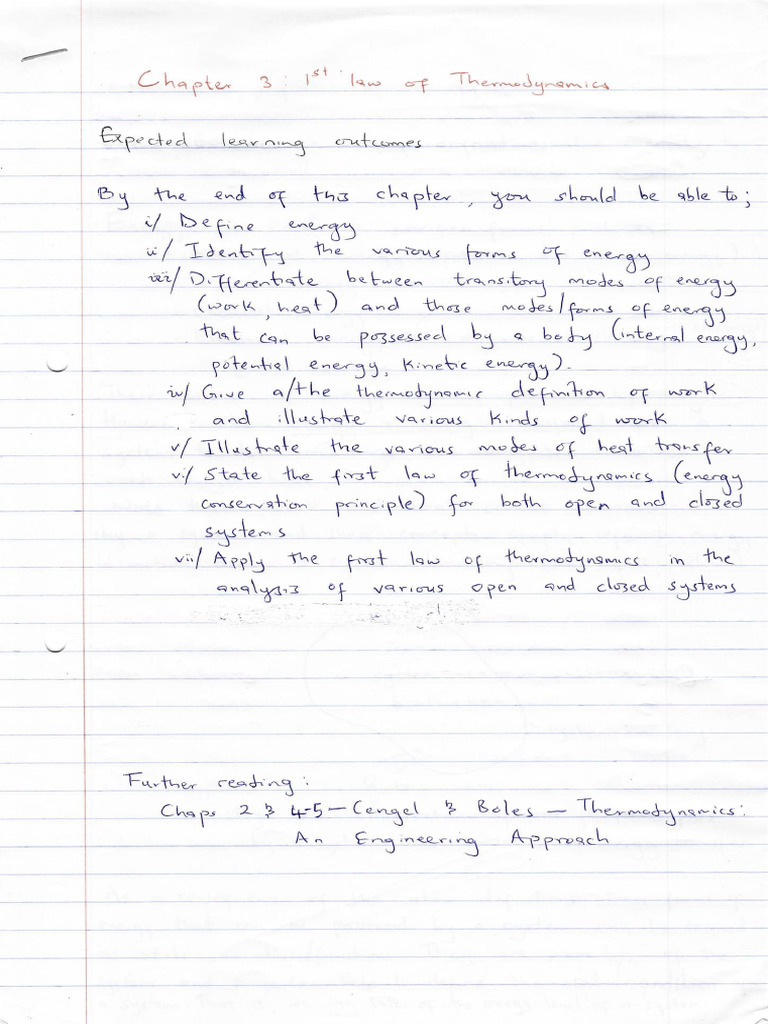 Chapter 3: 1st law of Thermodynamics
Expected learning outcomes
By the end of this chapter, you should be able to;
i/ Define energy
ii/ Identify the various forms of energy
iii/ Differentiate between transitory modes of energy
(work, heat) and those modes/forms of energy
that can be possessed by a body (internal energy,
potential energy, kinetic energy).
iv/ Give a/the thermodynamic definition of work
and illustrate various kinds of work
v/ Illustrate the various modes of heat transfer
vi/ State the first law of thermodynamics (energy
conservation principle) for both open and closed
systems
vii/ Apply the first law of thermodynamics in the
analysis of various open and closed systems
Further reading:
Chaps 2 & 4-5 — Cengel & Boles — Thermodynamics:
An Engineering Approach